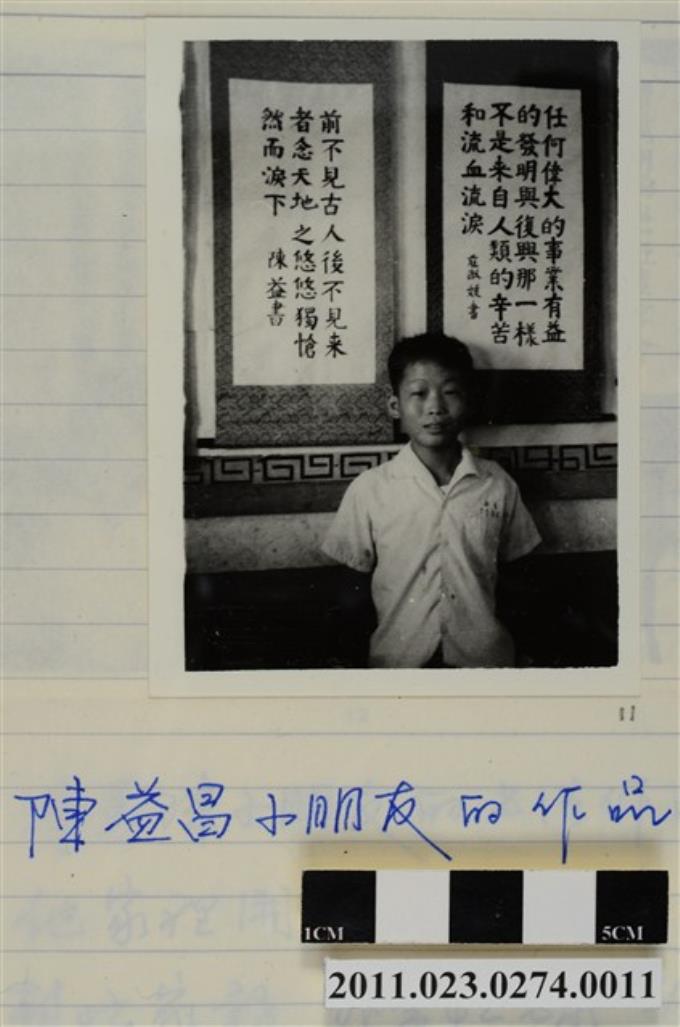 任何偉大的事業有益
的發明與復興那一樣
不是来自人類的辛苦
和流血流淚
前不見古人後不見来
者念天地之悠悠獨愴
然而淚下 陳益書
陳益昌小朋友的作品
1CM 5CM
2011.023.0274.0011